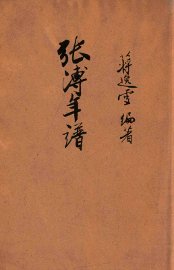 张溥年谱
蒋逸雪 编著